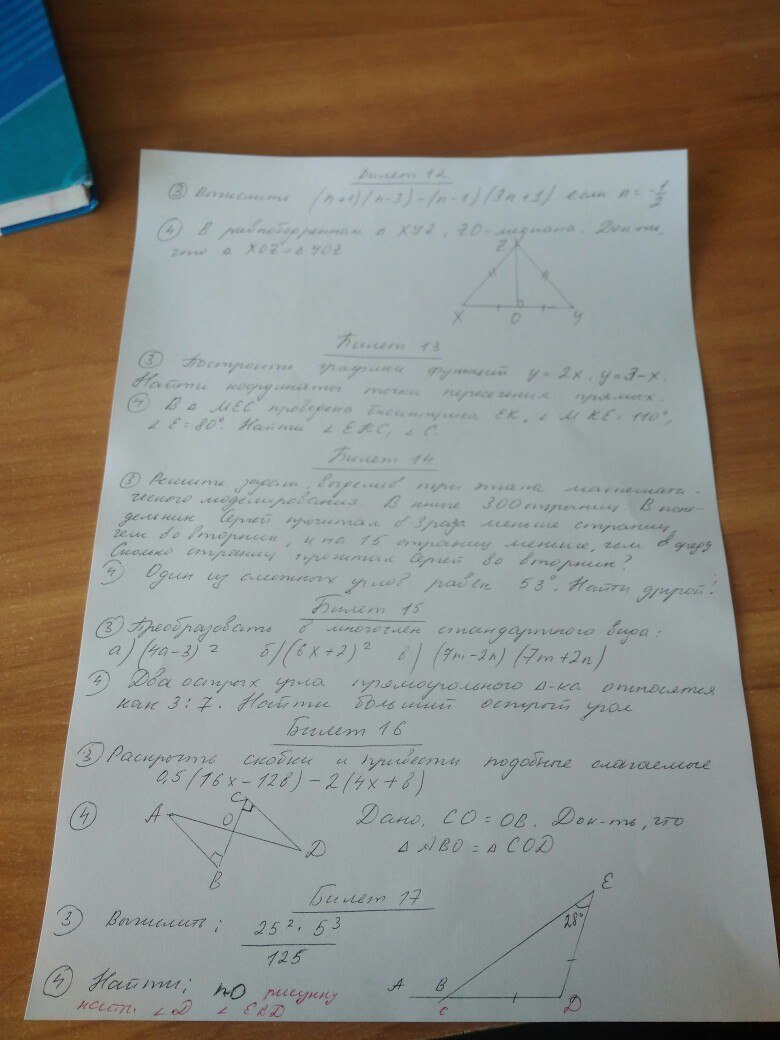 Билет 12
③ Вычислить (n+1)(n-3)-(n-1)(3n+1) если n=-1/2
④ В равнобедренном Δ XYZ, ZO-медиана. Док-ть,
что Δ XOZ=Δ YOZ
Z
X O Y
Билет 13
③ Построить графики функций y=2x, y=3-x.
Найти координаты точки пересечения прямых.
④ В Δ MEC проведена биссектриса EK, ∠ MKE=110°,
∠ E=80°. Найти ∠ EKC, ∠ C.
Билет 14
③ Решить задачу, выделив три этапа математи-
ческого моделирования. В книге 300 страниц. В поне-
дельник Сергей прочитал в 3 раза меньше страниц,
чем во вторник, и на 15 страниц меньше, чем в среду
Сколько страниц прочитал Сергей во вторник?
④ Один из смежных углов равен 53°. Найти другой!
Билет 15
③ Преобразовать в многочлен стандартного вида:
а) (4a-3)² б) (6x+2)² в) (7m-2n)(7m+2n)
④ Два острых угла прямоугольного Δ-ка относятся
как 3:7. Найти больший острый угол
Билет 16
③ Раскрыть скобки и привести подобные слагаемые
0,5(16x-12в)-2(4x+в)
④ A C O D B Дано, CO=OB. Док-ть, что
Δ ABO=Δ COD
Билет 17
③ Вычислить: 25²·5³
125
E
28°
④ Найти: по рисунку A B D
найти ∠D ∠ EBD c